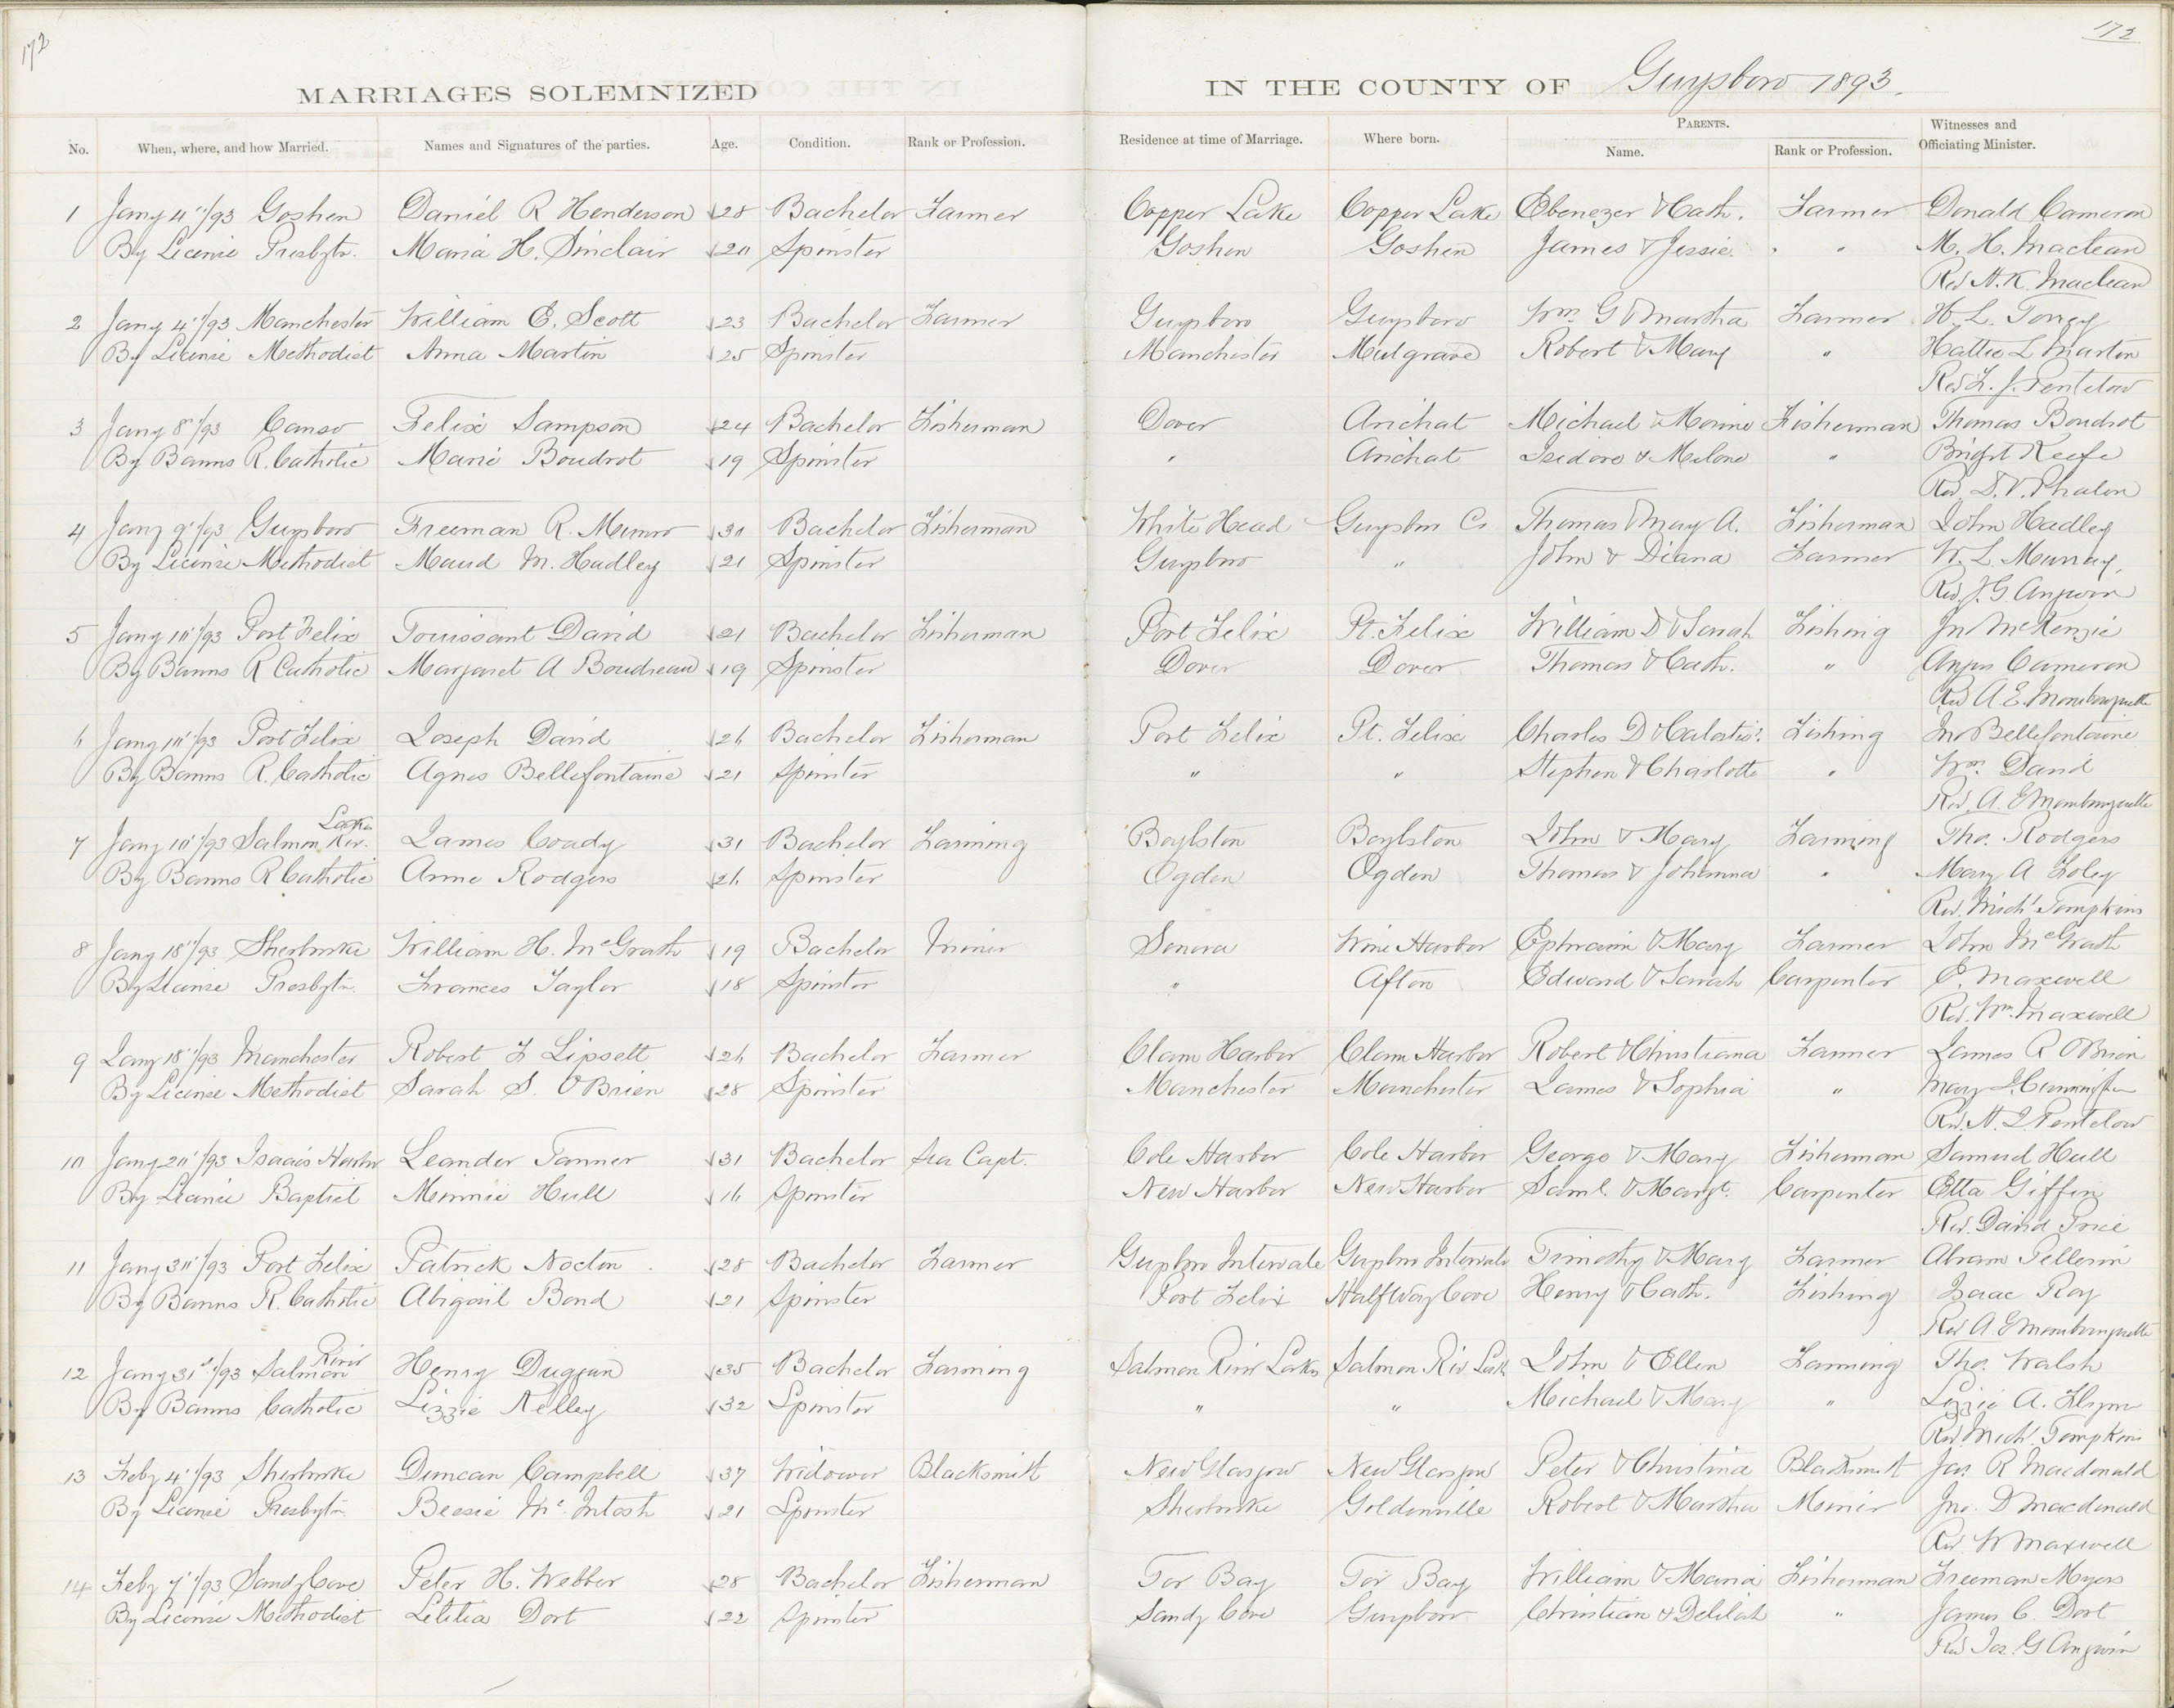 172
172
MARRIAGES SOLEMNIZED IN THE COUNTY OF Guysboro 1893.
No. When, where, and how Married. Names and Signatures of the parties. Age. Condition. Rank or Profession. Residence at time of Marriage. Where born. PARENTS. Name. Rank or Profession. Witnesses and Officiating Minister.
1 Jany 4"/93 Goshen Daniel R Henderson 28 Bachelor Farmer Copper Lake Copper Lake Ebenezer & Cath. Farmer Donald Cameron
By License Presbytn. Maria H. Sinclair 20 Spinster Goshen Goshen James & Jessie " " M. H. Maclean
Rev A. K. Maclean
2 Jany 4"/93 Manchester William E. Scott 23 Bachelor Farmer Guysboro Guysboro Wm. G & Martha Farmer H. L. Torrey
By License Methodist Anna Martin 25 Spinster Manchester Mulgrave Robert & Mary " Hattie L Martin
Rev J. Pentelow
3 Jany 8"/93 Canso Felix Sampson 24 Bachelor Fisherman Dover Arichat Michael & Fisherman Thomas Boudrot
By Banns R. Catholic Marie Boudrot 19 Spinster " Arichat Isidore & " Keefe
Rev. D. V. Phalen
4 Jany 9"/93 Guysboro Freeman R. Munro 30 Bachelor Fisherman White Head Guysboro Co Thomas & Mary A. Fisherman John Hadley
By License Methodist Maud M. Hadley 21 Spinster Guysboro " John & Diana Farmer W. L. Murray.
Rev J. G. Angwin
5 Jany 10"/93 Port Felix Touissant David 21 Bachelor Fisherman Port Felix Pt. Felix William D & Sarah Fishing Jn McKenzie
By Banns R Catholic Margaret A Boudreau 19 Spinster Dover Dover Thomas & Cath. " Angus Cameron
Rev A. E. Mombourquette
6 Jany 10"/93 Port Felix Joseph David 26 Bachelor Fisherman Port Felix Pt. Felix Charles D & Fishing Jno Bellefontaine
By Banns R. Catholic Agnes Bellefontaine 21 Spinster " " Stephen & Charlotte " Wm. David
Rev. A. E Mombourquette
7 Jany 10"/93 Salmon Riv. Lakes James Coady 31 Bachelor Farming Boylston Boylston John & Mary Farming Tho. Rodgers
By Banns R Catholic Anne Rodgers 26 Spinster Ogden Ogden Thomas & Johanna " Mary A Foley
Rev. Michl. Tompkins
8 Jany 18"/93 Sherbrooke William H. McGrath 19 Bachelor Miner Sonora Wine Harbor Ephraim & Mary Farmer John McGrath
By License Presbytn. Frances Taylor 18 Spinster " Afton Edward & Sarah Carpenter E. Maxwell
Rev. Wm. Maxwell
9 Jany 18"/93 Manchester Robert F Lipsett 26 Bachelor Farmer Clam Harbor Clam Harbor Robert & Christiana Farmer James R OBrien
By License Methodist Sarah S. OBrien 28 Spinster Manchester Manchester James & Sophia " Mary
Rev. Pentelow
10 Jany 20"/93 Isaacs Harbor Leander Tanner 31 Bachelor Sea Capt. Cole Harbor Cole Harbor George & Mary Fisherman Samuel Hull
By License Baptist Minnie Hull 16 Spinster New Harbor New Harbor Saml. & Margt. Carpenter Etta Giffin
Rev. David Price
11 Jany 30"/93 Port Felix Patrick Nocton 28 Bachelor Farmer Guysboro Intervale Guysboro Intervale Timothy & Mary Farmer Abram Pellerin
By Banns R. Catholic Abigail Bond 21 Spinster Port Felix Half Way Cove Henry & Cath. Fishing Isaac Roy
Rev A E Mombourquette
12 Jany 31st/93 Salmon River Henry Duggan 35 Bachelor Farming Salmon River Lakes Salmon Riv Lake John & Ellen Farming Tho. Walsh
By Banns Catholic Lizzie Kelley 32 Spinster " " Michael & Mary " Lizzie A. Flynn
Rev. Michl. Tompkins
13 Feby 4"/93 Sherbrooke Duncan Campbell 37 Widower Blacksmith New Glasgow New Glasgow Peter & Christina Blacksmith Jas R Macdonald
By License Presbytn. Bessie McIntosh 21 Spinster Sherbrooke Goldenville Robert & Martha Miner Jno. D Macdonald
Rev W Maxwell
14 Feby 7"/93 Sandy Cove Peter H. Webber 28 Bachelor Fisherman Tor Bay Tor Bay William & Maria Fisherman Freeman Myers
By License Methodist Letitia Dort 22 Spinster Sandy Cove Guysboro Christian & Delilah " James C. Dort
Rev Jos. G Angwin